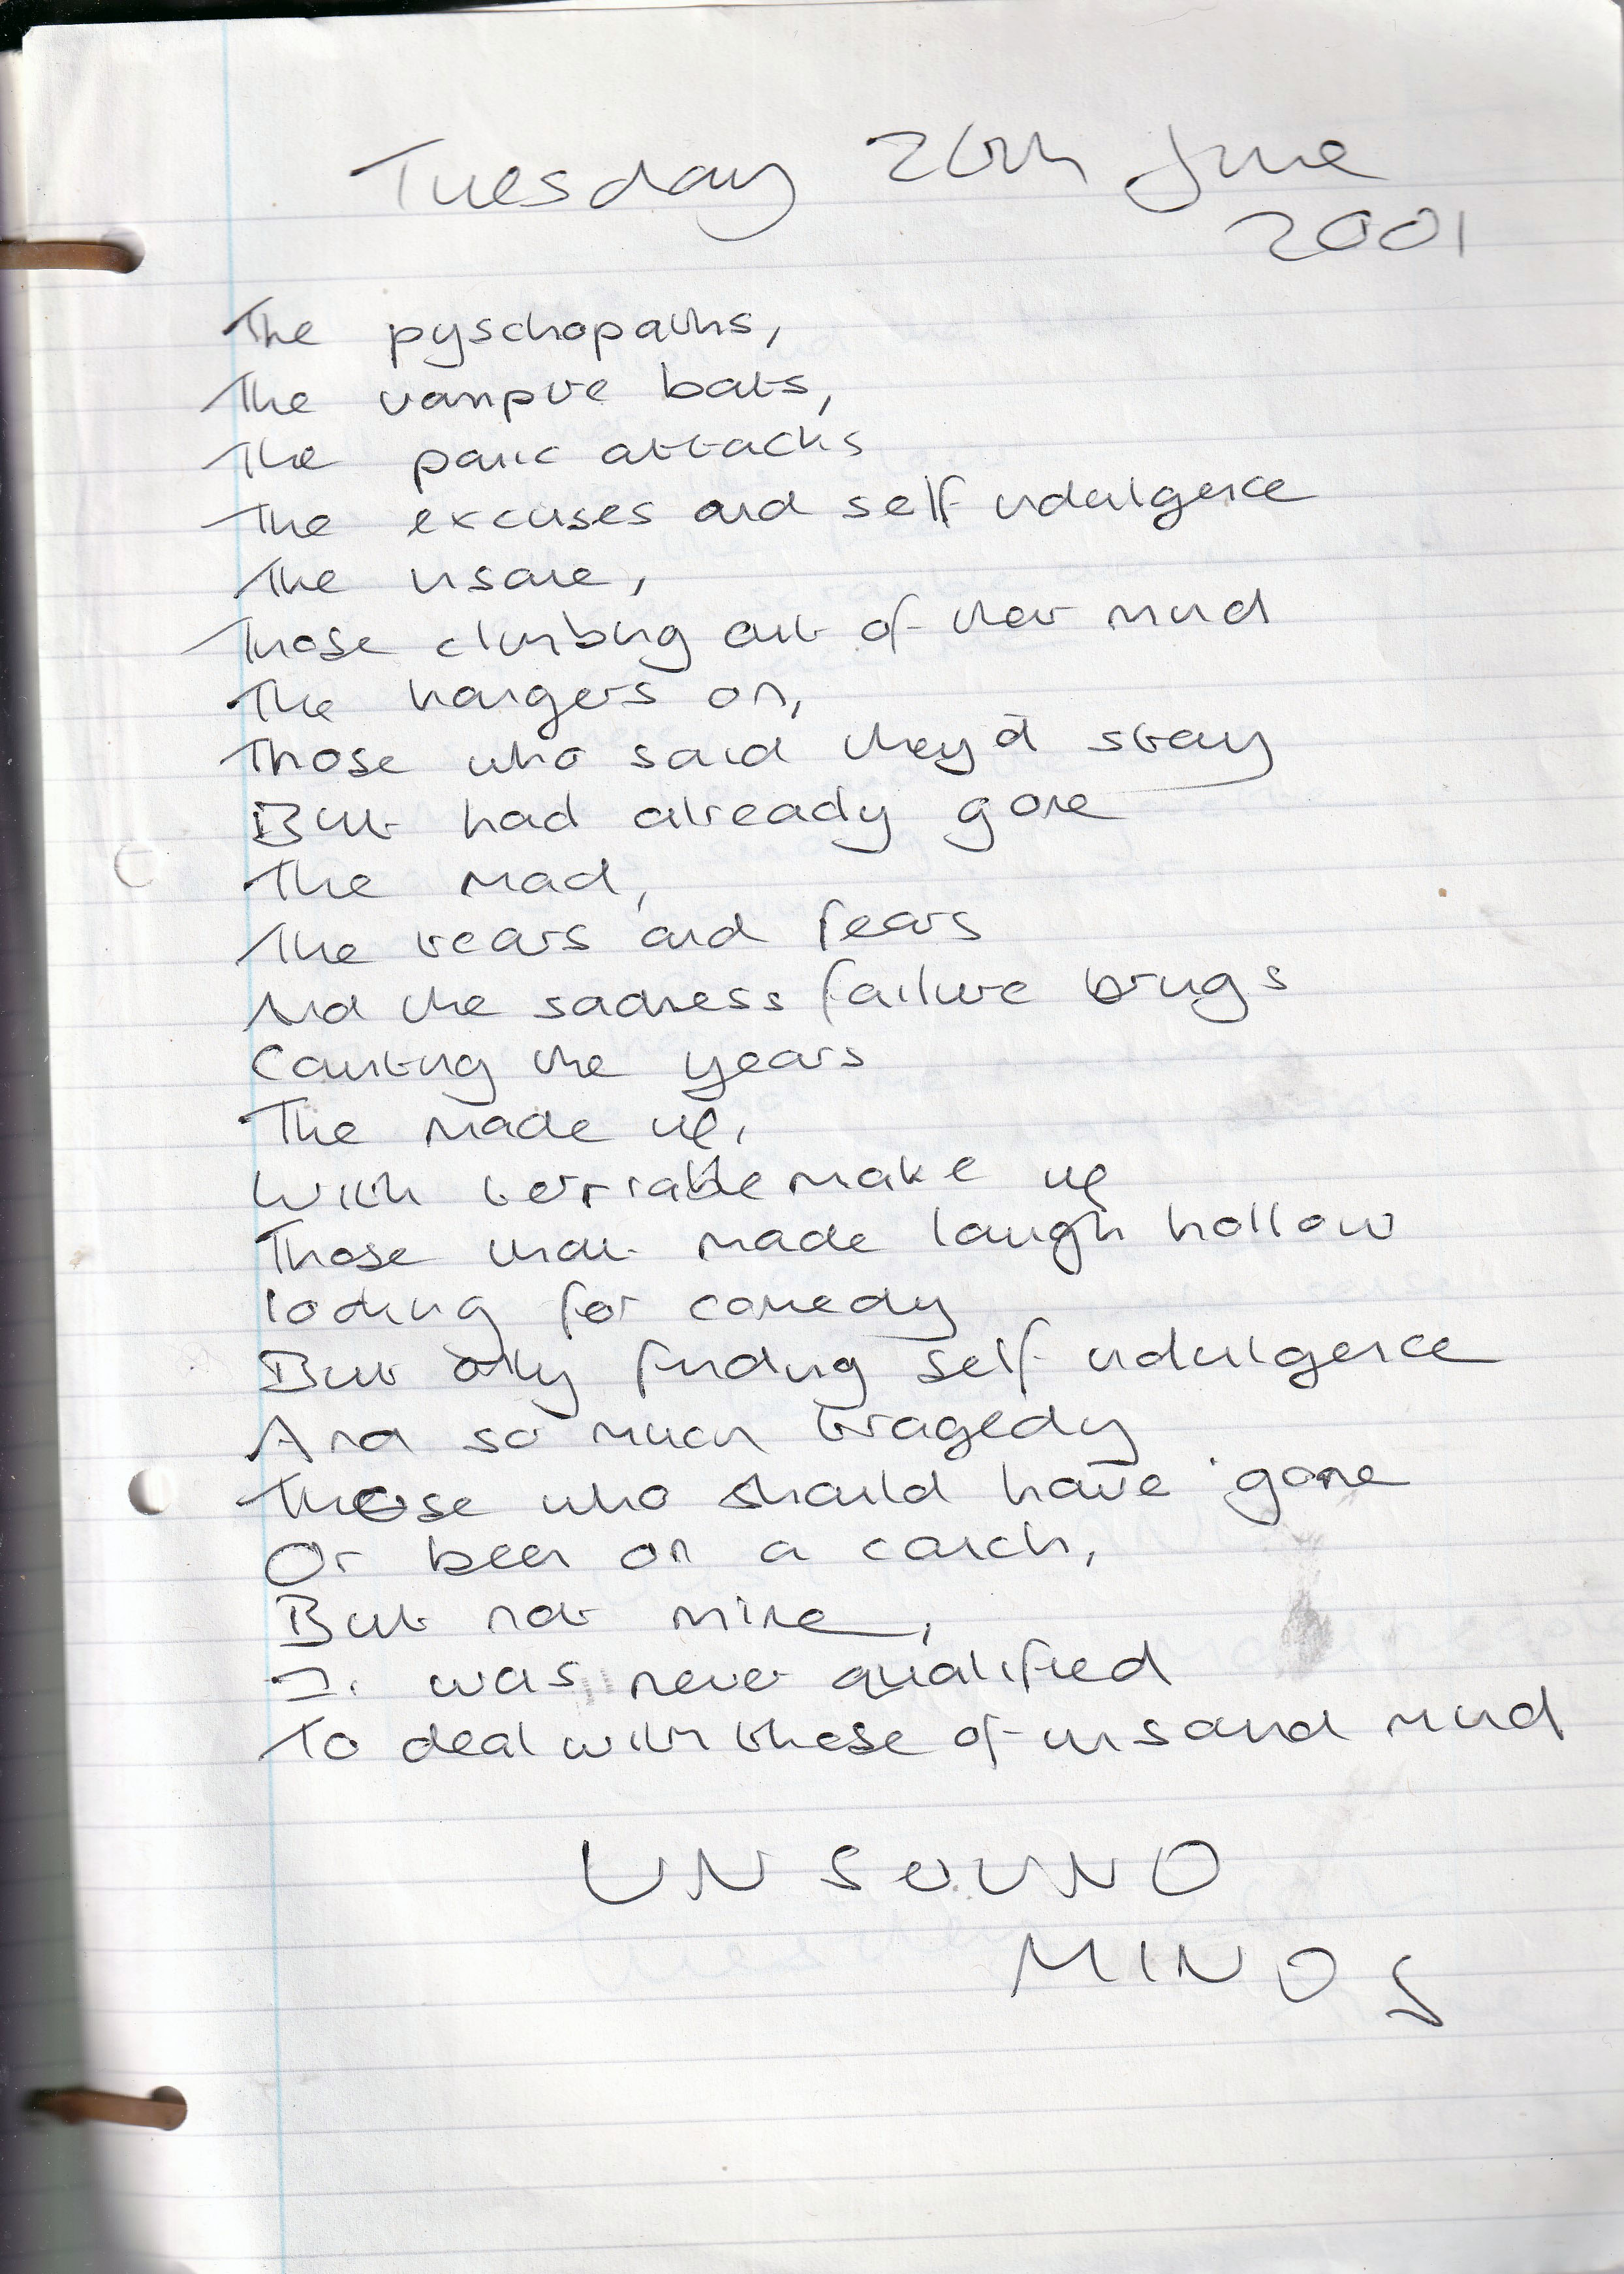 Tuesday 26th June
2001
The pyschopaths,
The vampire bats,
The panic attacks
The excuses and self indulgence
The insane,
Those climbing out of their mind
The hangers on,
Those who said they'd stay
But had already gone
The mad,
The tears and fears
And the sadness failure brings
Counting the years
The made up,
With terriable make up
Those that made laugh hollow
looking for comedy
But only finding self indulgence
And so much tragedy
Those who should have gone
Or been on a couch,
But not mine,
I. was never qualified
To deal with those of unsound mind
UNSOUND
MINDS